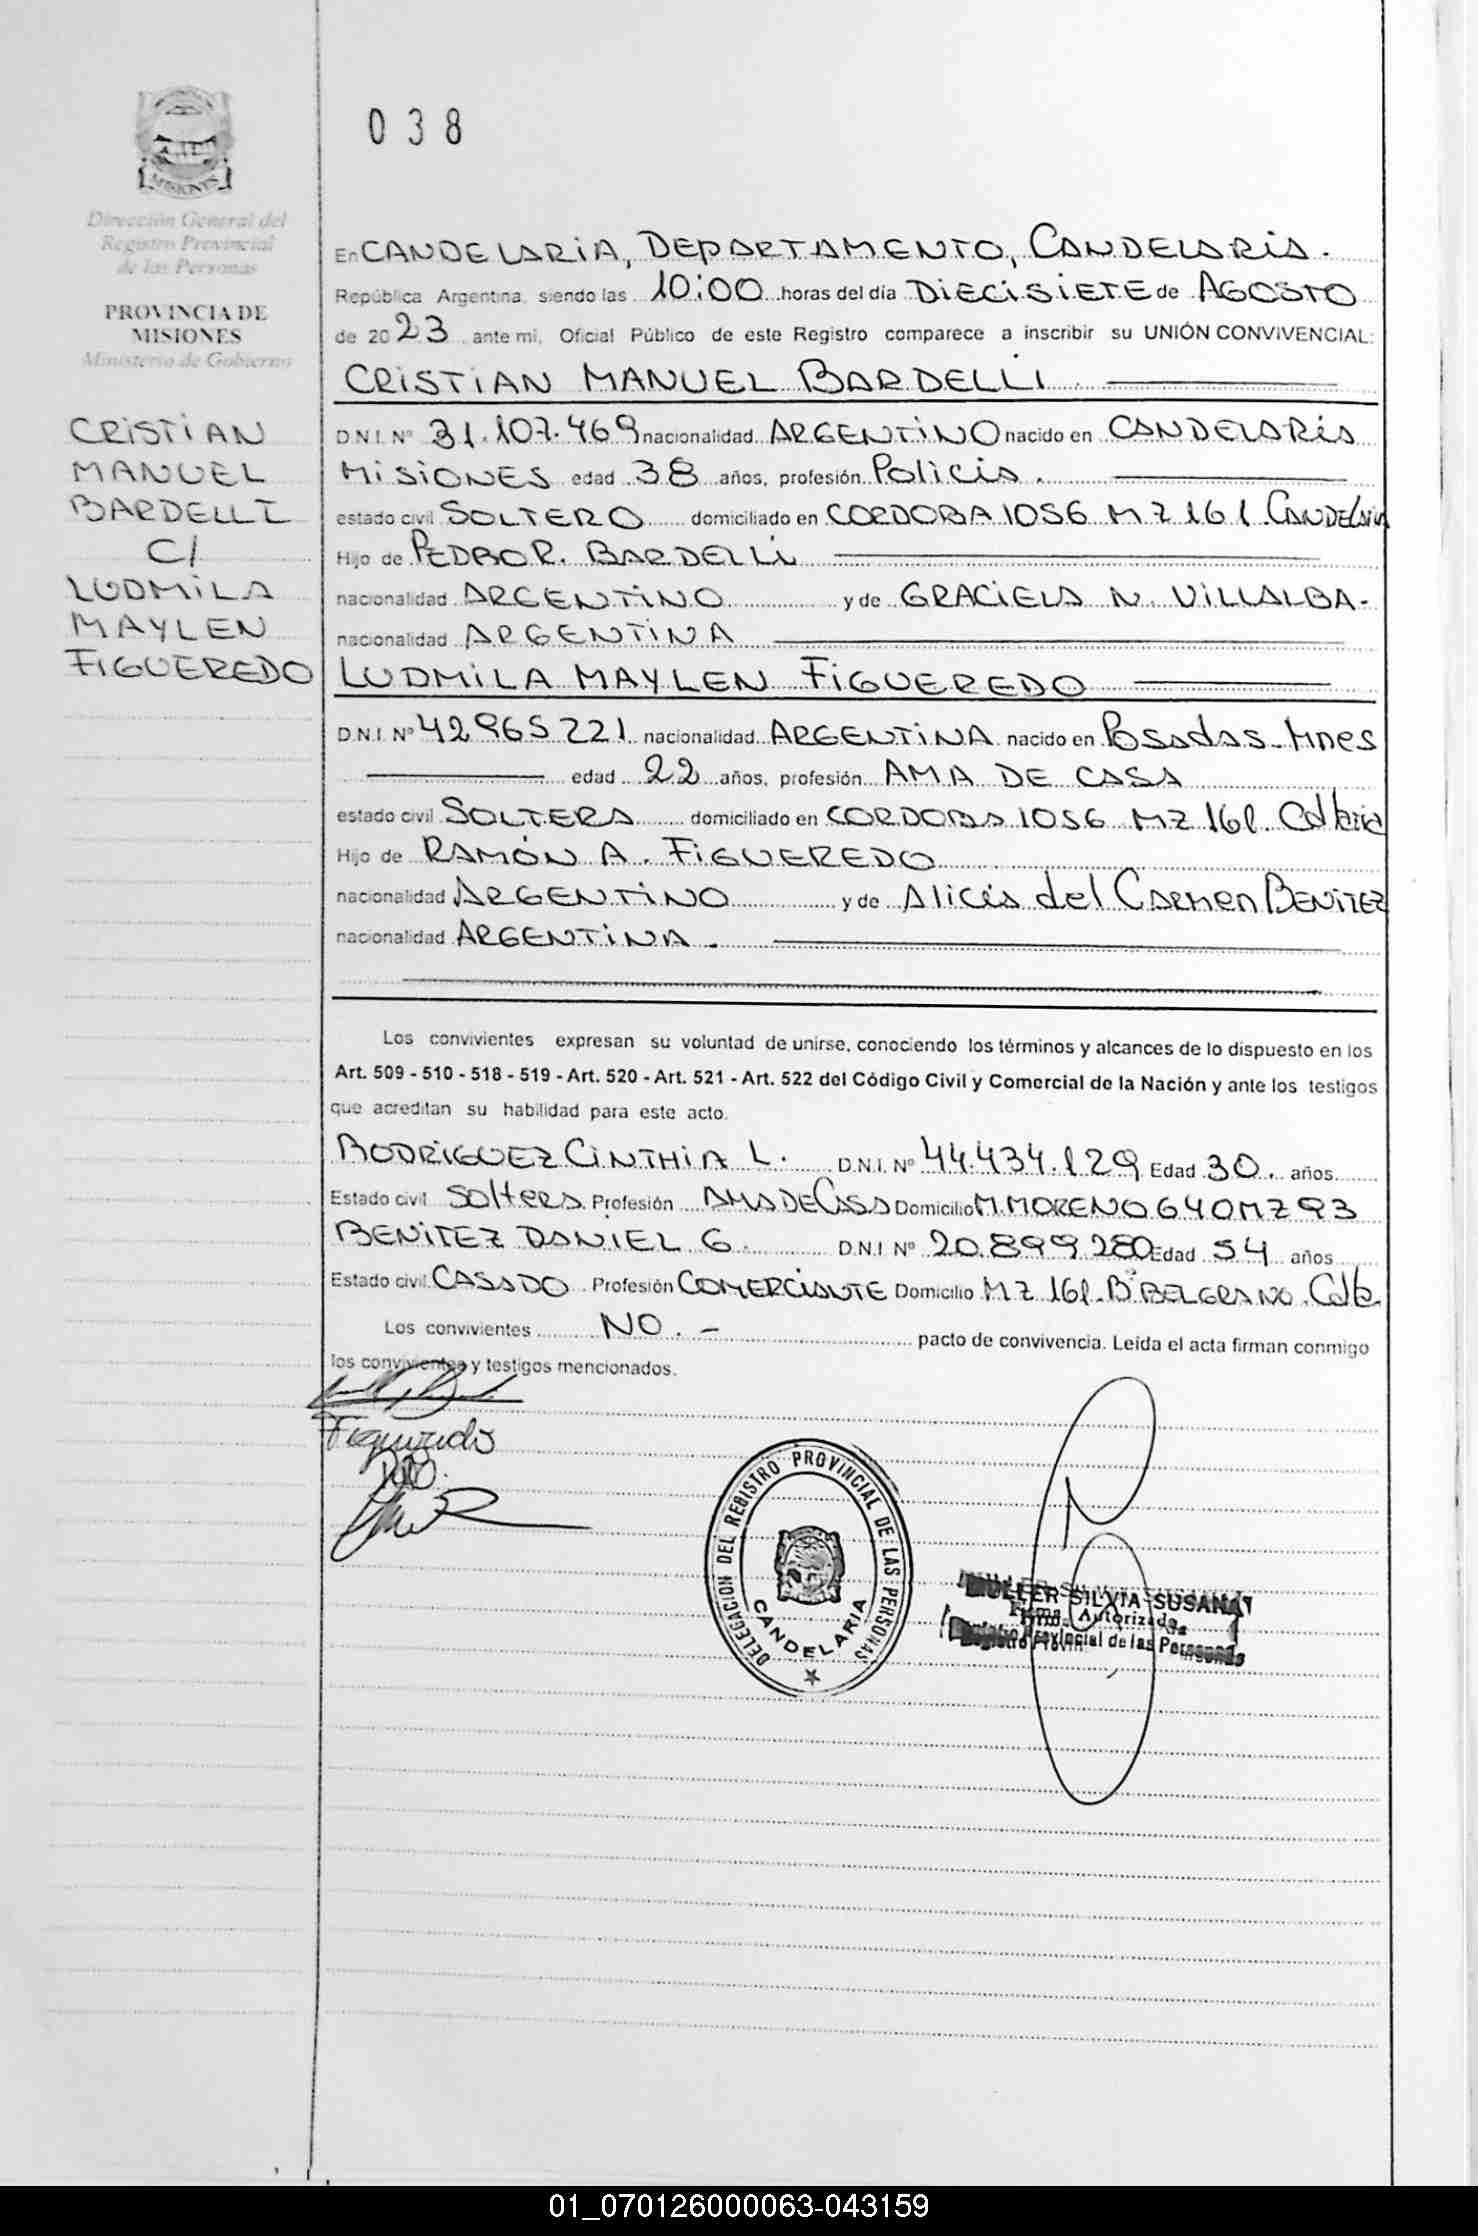 038
MISIONES
Dirección General del
Registro Provincial
de las Personas
PROVINCIA DE
MISIONES
Ministerio de Gobierno
CRISTIAN
MANUEL
BARDELLI
C/
LUDMILA
MAYLEN
FIGUEREDO
En CANDELARIA, DEPARTAMENTO, CANDELARIA.
República Argentina, siendo las 10:00 horas del día DIECISIETE de AGOSTO
de 2023 ante mi, Oficial Público de este Registro comparece a inscribir su UNIÓN CONVIVENCIAL:
CRISTIAN MANUEL BARDELLI
D.N.I. Nº 31.107.469 nacionalidad ARGENTINO nacido en CANDELARIA
MISIONES edad 38 años, profesión Policia.
estado civil SOLTERO domiciliado en CORDOBA 1056 MZ 161. CANDELARIA
Hijo de PEDRO R. BARDELLI
nacionalidad ARGENTINO y de GRACIELA N. VILLALBA-
nacionalidad ARGENTINA
LUDMILA MAYLEN FIGUEREDO
D.N.I. Nº 42965221 nacionalidad ARGENTINA nacido en Posadas-Mnes
edad 22 años, profesión AMA DE CASA
estado civil SOLTERA domiciliado en CORDOBA 1056 MZ 161. Cdlaria
Hijo de RAMÓN A. FIGUEREDO
nacionalidad ARGENTINO y de Alicia del Carmen BENITEZ
nacionalidad ARGENTINA.
Los convivientes expresan su voluntad de unirse, conociendo los términos y alcances de lo dispuesto en los
Art. 509 - 510 - 518 - 519 - Art. 520 - Art. 521 - Art. 522 del Código Civil y Comercial de la Nación y ante los testigos
que acreditan su habilidad para este acto.
RODRIGUEZ CINTHIA L. D.N.I. Nº 44.434.129 Edad 30. años
Estado civil Soltera Profesión AMA DE CASA Domicilio M. MORENO 640 MZ 93
BENITEZ DANIEL G. D.N.I. Nº 20.899.280 Edad 54 años
Estado civil CASADO Profesión COMERCIANTE Domicilio MZ 161. Bº BELGRANO. Cdla.
Los convivientes NO. - pacto de convivencia. Leída el acta firman conmigo
los convivientes y testigos mencionados.
Figueredo
DELEGACION DEL REGISTRO PROVINCIAL DE LAS PERSONAS
CANDELARIA
MULLER SILVIA SUSANA
Firma Autorizada
Registro Provincial de las Personas
01_070126000063-043159